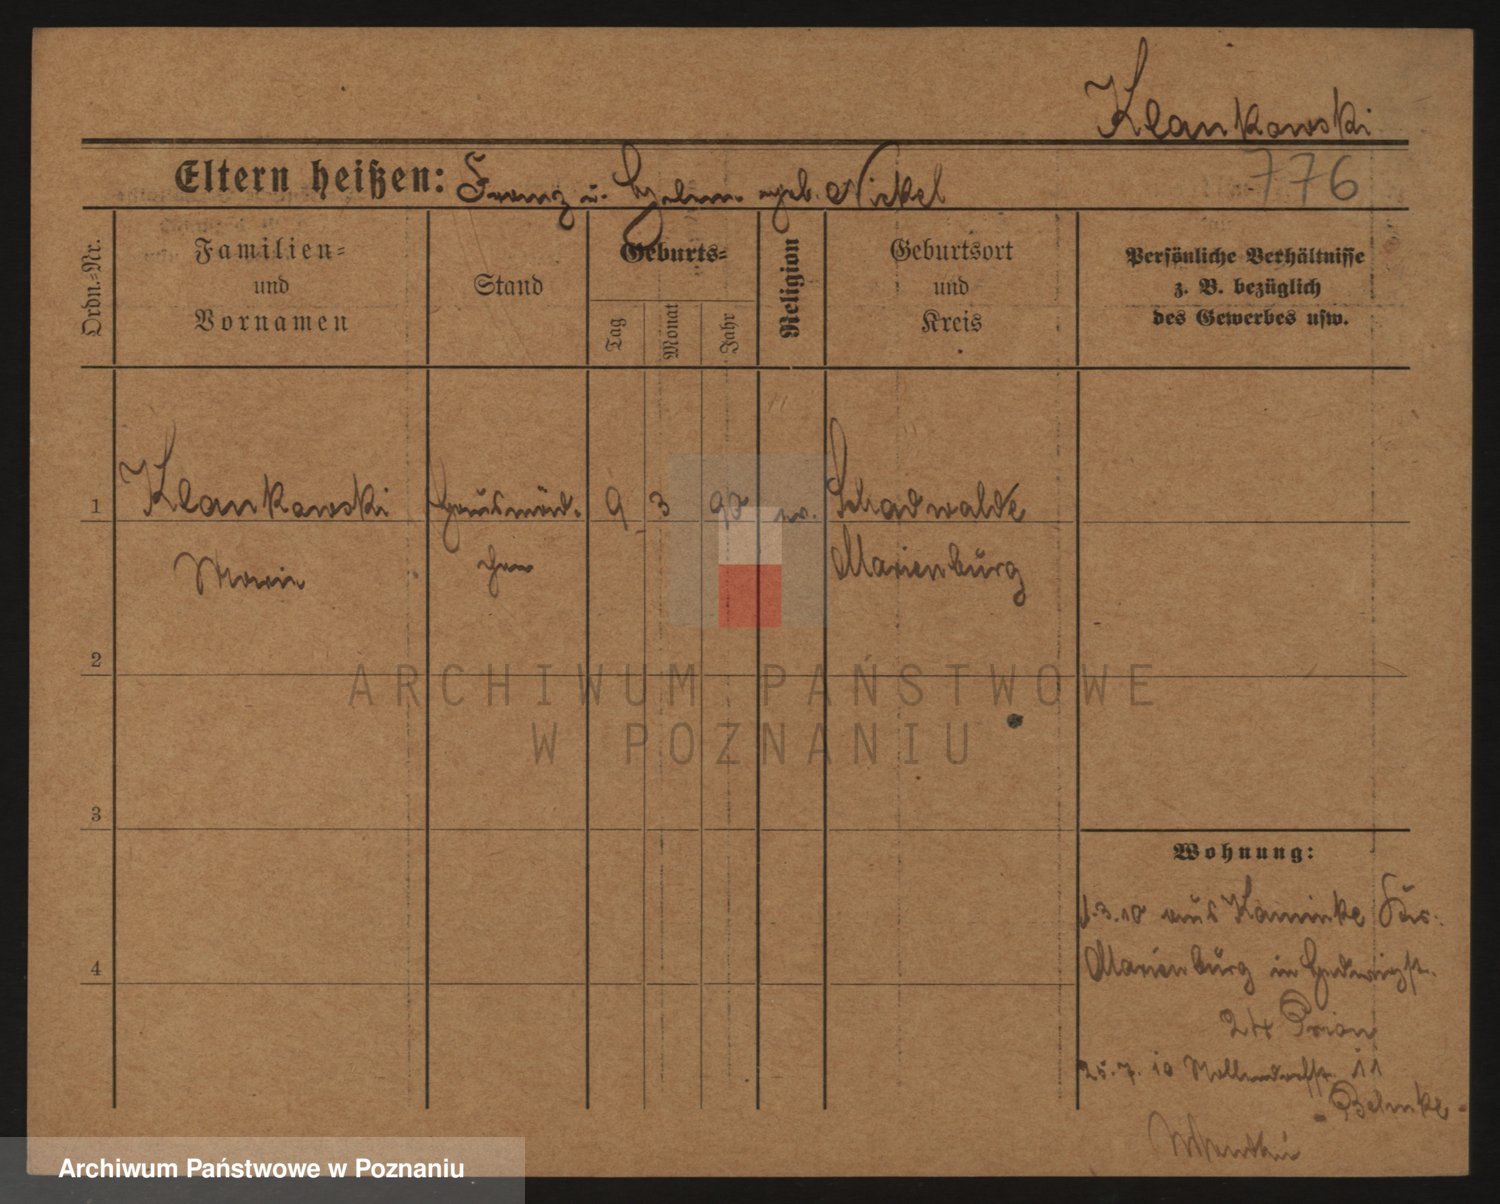 Klankowski
776
Eltern heißen: Franz u. Helene geb. Nickel
Ordn.=Nr.
Familien=
und
Vornamen
Stand
Geburts=
Tag
Monat
Jahr
Religion
Geburtsort
und
Kreis
Persönliche Verhältnisse
z. B. bezüglich
des Gewerbes usw.
1
Klankowski
Hausmäd.
9
3
90
ev.
Schadwalde
Marie
chen
Marienburg
2
3
4
Wohnung:
1.3.10 aus Kaminke Krs.
Marienburg in Hedwigst.
24 Prion
25. 7. 10 11
- Behnke -
ARCHIWUM PAŃSTWOWE
W POZNANIU
Archiwum Państwowe w Poznaniu